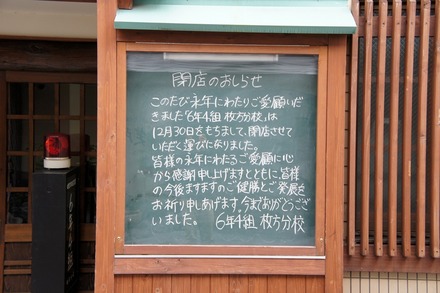 閉店のおしらせ
このたび永年にわたりご愛願いだ
きました"6年4組 枚方分校"は
12月30日をもちまして、閉店させて
いただく運びになりました。
皆様の永年にわたるご愛願に心
から感謝申し上げますとともに、皆様
の今後ますますのご健勝とご発展を
お祈り申しあげます。今までありがとうござ
いました。 6年4組 枚方分校